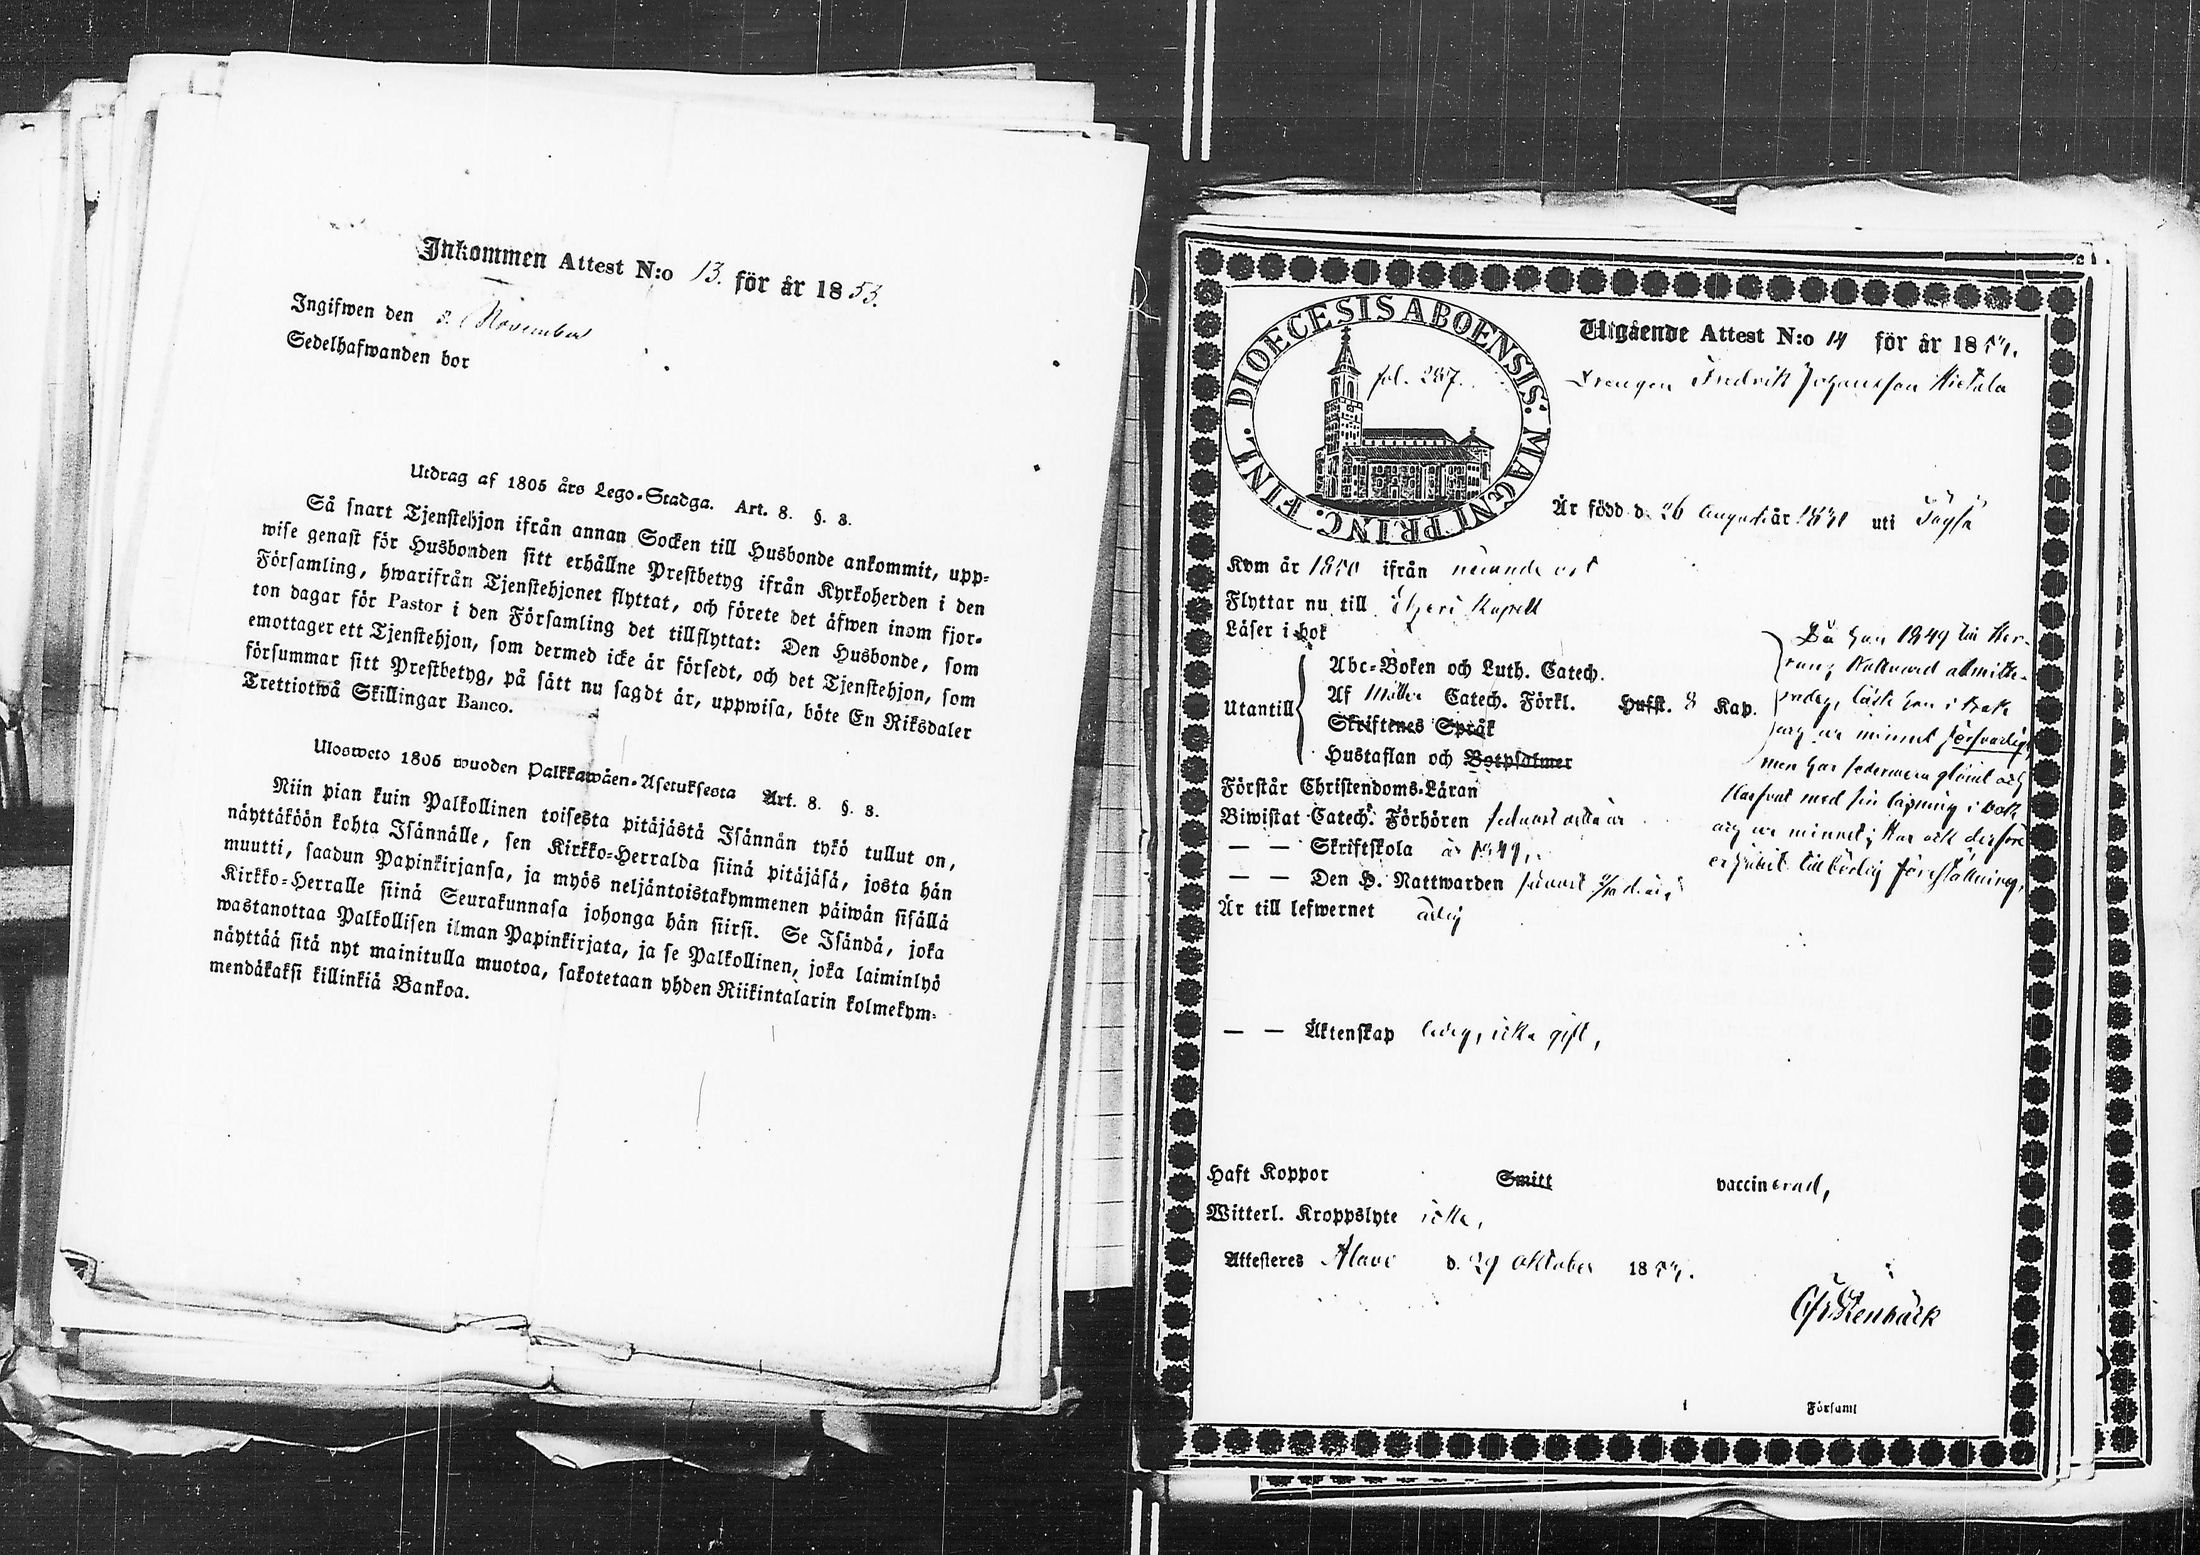 Inkommen Attest N:o 13. för år 1853.
Ingifwen den 2. November
Sedelhafwanden bor
Utdrag af 1805 års Lego-Stadga. Art. 8. §. 3.
Så snart Tjenstehjon ifrån annan Socken till Husbonde ankommit, upp-
wise genast för Husbonden sitt erhållne Prestbetyg ifrån Kyrkoherden i den
Församling, hwarifrån Tjenstehjonet flyttat, och förete det äfwen inom fjor-
ton dagar för Pastor i den Församling det tillflyttat: Den Husbonde, som
emottager ett Tjenstehjon, som dermed icke är försedt, och det Tjenstehjon, som
försummar sitt Prestbetyg, på sätt nu sagdt är, uppwisa, böte En Riksdaler
Trettiotwå Skillingar Banco.
Ulosweto 1805 wuoden Palkkawäen-Asetuksesta Art. 8. §. 3.
Niin pian kuin Palkollinen toisesta pitäjästä Isännän tykö tullut on,
näyttäköön kohta Isännälle, sen Kirkko-Herralda siinä pitäjäsä, josta hän
muutti, saadun Papinkirjansa, ja myös neljäntoistakymmenen päiwän sisällä
Kirkko-Herralle siinä Seurakunnasa johonga hän siirsi. Se Isändä, joka
wastanottaa Palkollisen ilman Papinkirjata, ja se Palkollinen, joka laiminlyö
näyttää sitä nyt mainitulla muotoa, sakotetaan yhden Riikintalarin kolmekym-
mendäkaksi killinkiä Bankoa.
FINL. DIOECESIS ABOENSIS: MAGNI PRINC.
fol. 287.
Utgående Attest N:o 14 för år 185
Drengen Fredrik Johansson Hietala
Är född d. 26 Augusti år 18 uti
Kom år 1850 ifrån nämnde ort
Flyttar nu till Etseri Kapell
Läser i bok
Utantill
Abc-Boken och Luth. Catech.
Af Möller Catech. Förkl. Hufst. 8 Kap.
Skriftenes Språk
Hustaflan och Botpsalmer
Då han 1849 till Her-
rans Nattvard admitte-
rades, läste han i bok
och ur minnet försvarligt,
men har sedermera glömt och
med sin läsning i bok
och ur minnet; har ock derföre
erhållit tillbörlig föreställning.
Förstår Christendoms-Läran
Biwistat Catech. Förhören sednast detta år
— — Skriftskola år 1849,
— — Den H. Nattwarden
Är till lefwernet ärlig
— — Äktenskap ledig, icke gift,
Haft Koppor Smitt vaccinerad,
Witterl. Kroppslyte icke,
Attesteres Alavo d. 29 Oktober 185
Stenbäck
Församl